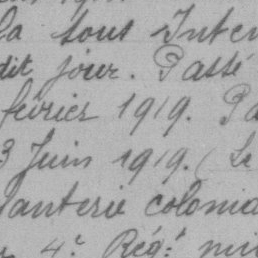 la sous Inten
dit jour. Passé
février 1919. Pa
3 Juin 1919. (Le
anterie colonia
4e Rég.t mi